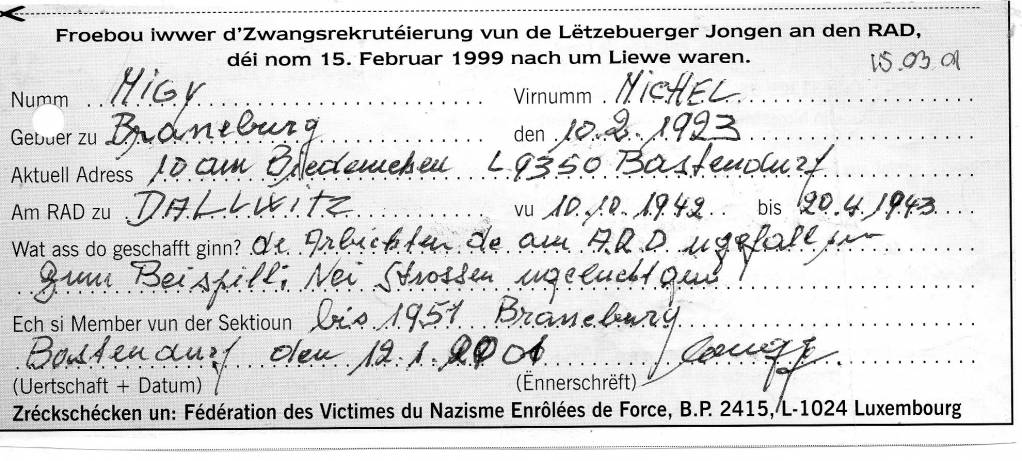 Froebou iwwer d'Zwangsrekrutéierung vun de Lëtzebuerger Jongen an den RAD,
déi nom 15. Februar 1999 nach um Liewe waren.
15.03.01
Numm MIGY Virnumm MICHEL
Gebuer zu Braneburg den 10.2.1923
Aktuell Adress 10 am L 9350 Bastendurf
Am RAD zu DALLWITZ vu 10.10.1942 bis 20.4.1943
Wat ass do geschafft ginn? de de am ugefall
zum Beispill: Nei Strossen ugeluecht
Ech si Member vun der Sektioun bis 1951 Braneburg
Bastendurf den 12.1.2001
(Uertschaft + Datum) (Ënnerschrëft)
Zréckschécken un: Fédération des Victimes du Nazisme Enrôlées de Force, B.P. 2415, L-1024 Luxembourg